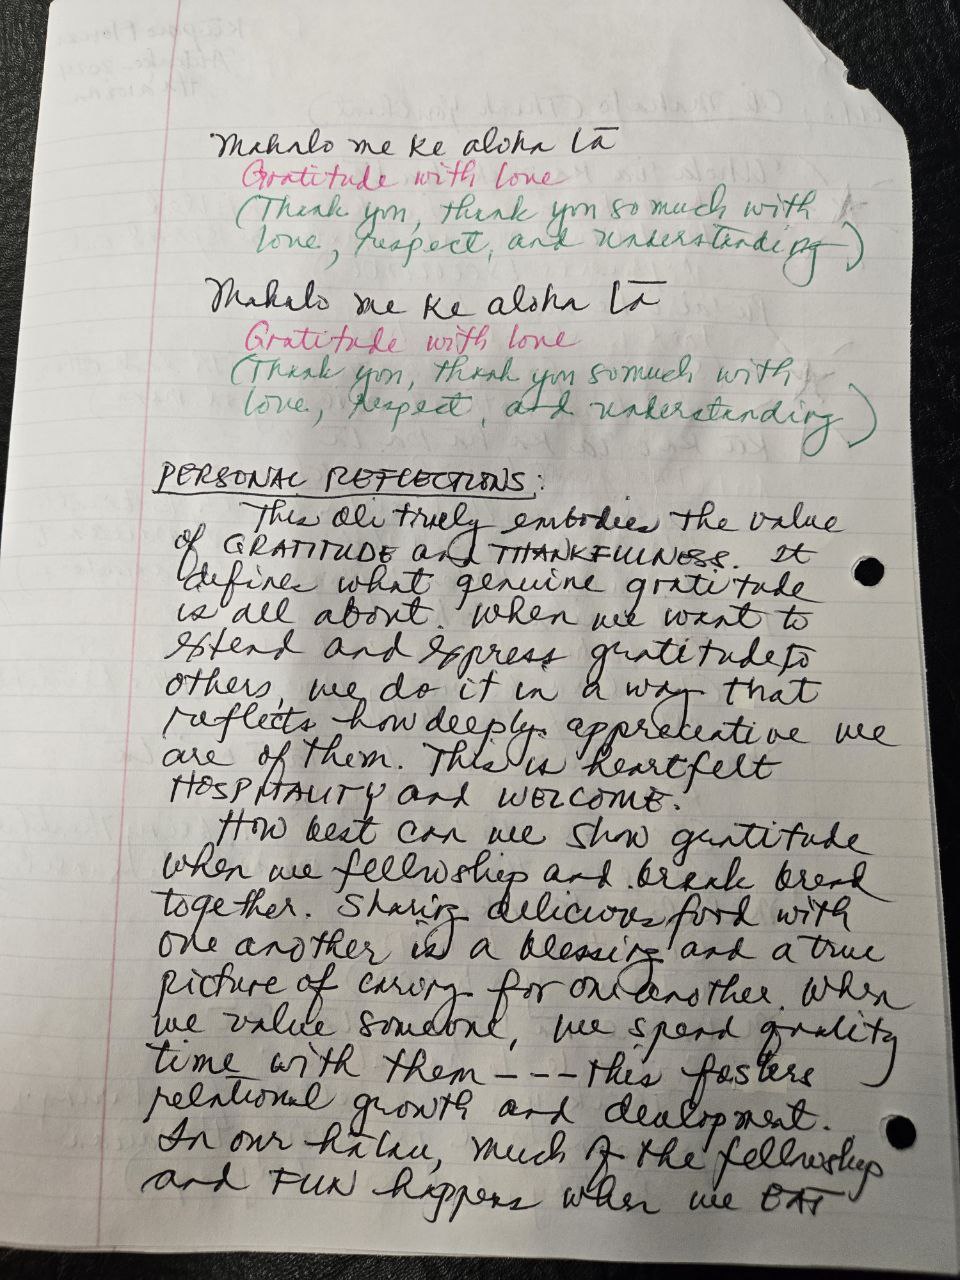 Mahalo me ke aloha lā
Gratitude with love
(Thank you, thank you so much with
love, respect, and understanding)
Mahalo me ke aloha lā
Gratitude with love
(Thank you, thank you so much with
love, respect, and understanding)
PERSONAL REFLECTIONS:
This oli truly embodies the value
of GRATITUDE and THANKFULNESS. It
defines what genuine gratitude
is all about. When we want to
extend and express gratitude to
others, we do it in a way that
reflects how deeply appreciative we
are of them. This is heartfelt
HOSPITALITY and WELCOME.
How best can we show gratitude
when we fellowship and break bread
together. Sharing delicious food with
one another is a blessing and a true
picture of caring for one another. When
we value someone, we spend quality
time with them - - - this fosters
relational growth and development.
In our hālau, much of the fellowship
and FUN happens when we EAT